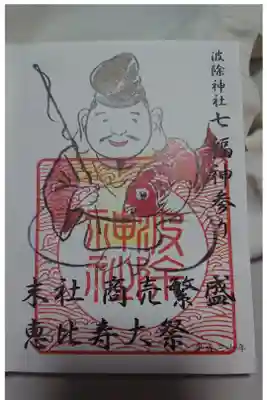 波除神社 七福神参り
波除
神社
末社 商売繁盛
恵比寿大祭